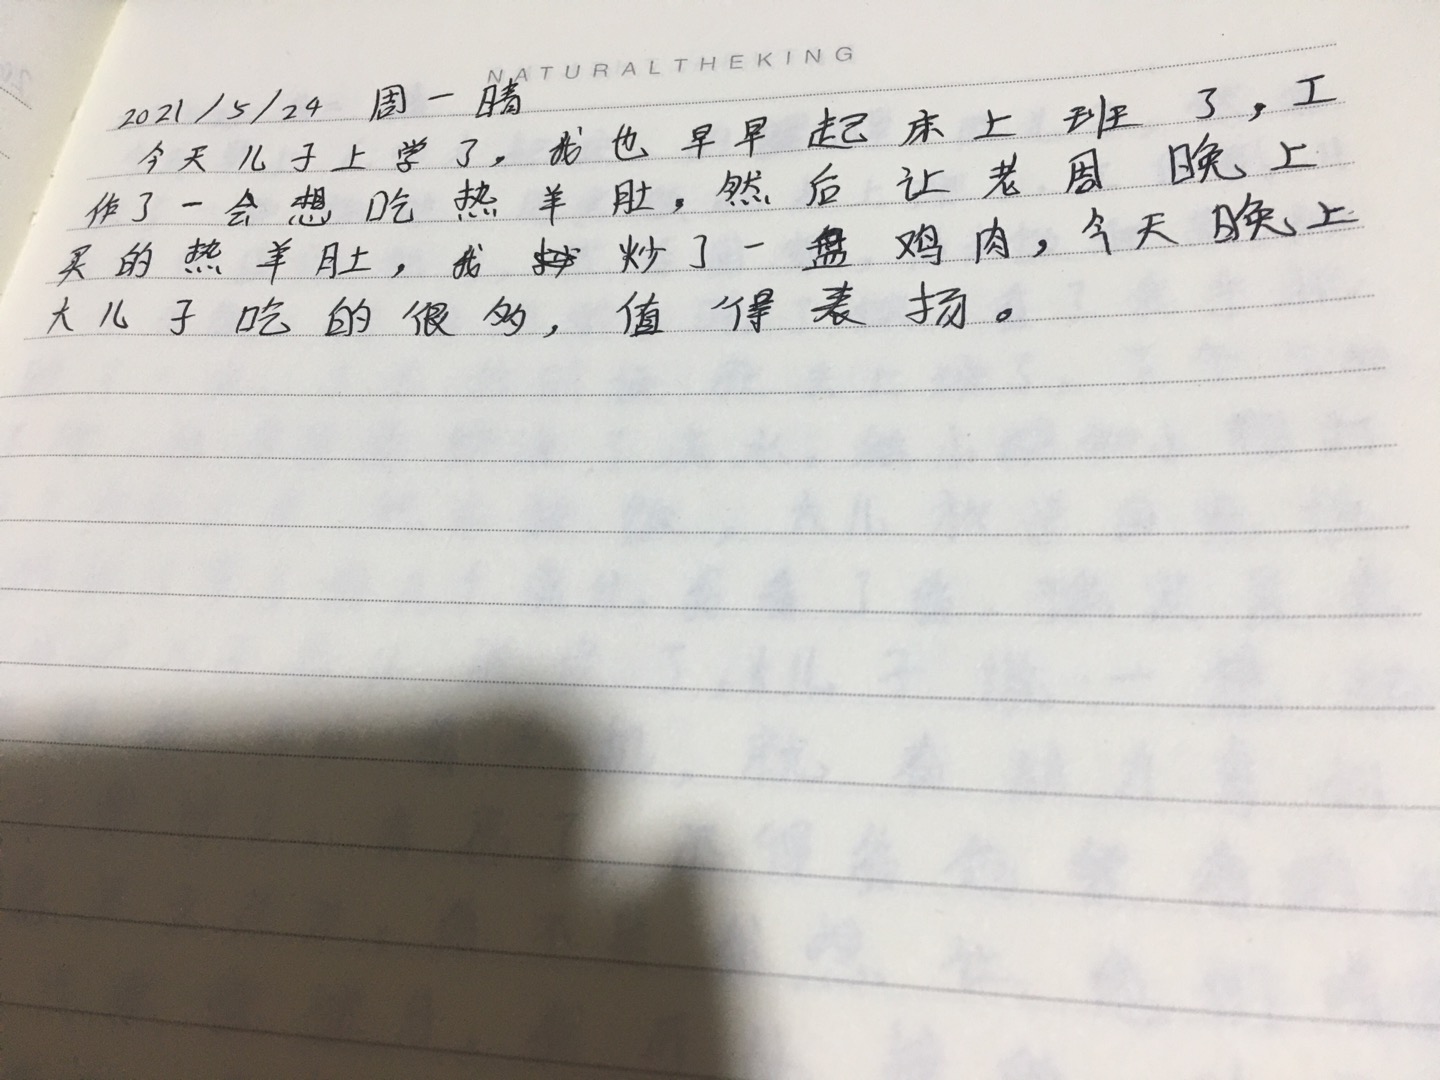 NATURALTHEKING
2021/5/24 周一 晴
今天儿子上学了。我也早早起床上班了，工
作了一会想吃热羊肚。然后让老周晚上
买的热羊肚，我炒了一盘鸡肉，今天晚上
大儿子吃的很多，值得表扬。